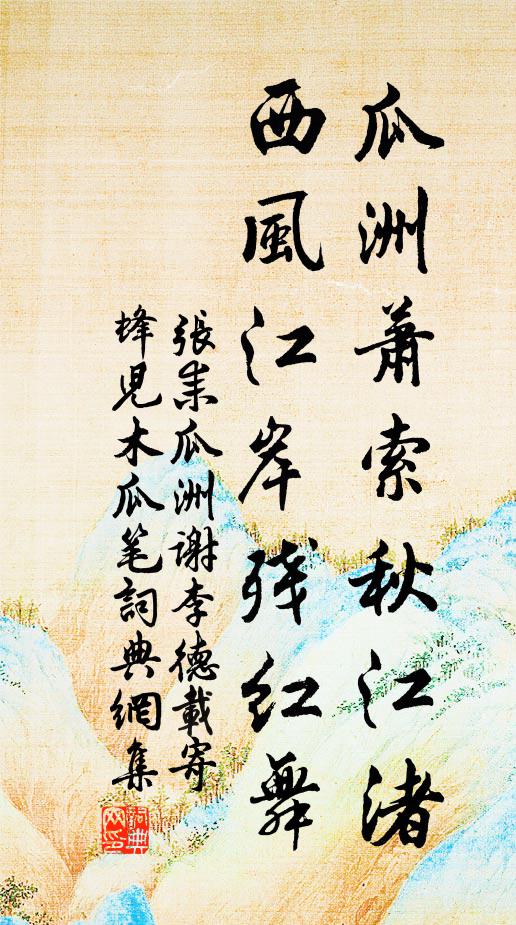 瓜洲蕭索秋江渚
西風江岸殘紅舞
張耒瓜洲谢李德載寄
蜂児木瓜笔詞典網集
詞典
网印